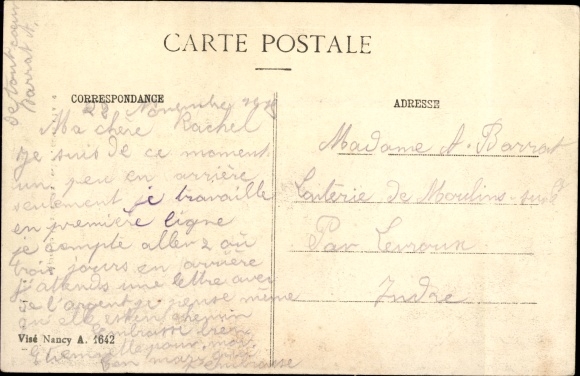 CARTE POSTALE
CORRESPONDANCE
ADRESSE
de tout cœur
Barrat A.
22 Novembre 1915
Ma chère Rachel
je suis de ce moment
un peu en arrière
seulement je travaille
en première ligne
je compte aller 2 où
trois jours en arrière
j'attends une lettre avec
de l'argent je pense même
qu'elle est en chemin
Embrasse bien
pour moi
ton mari qui
Madame A. Barrat
Laiterie de Moulins-sur
Par Levroux
Indre
Visé Nancy A. 1642